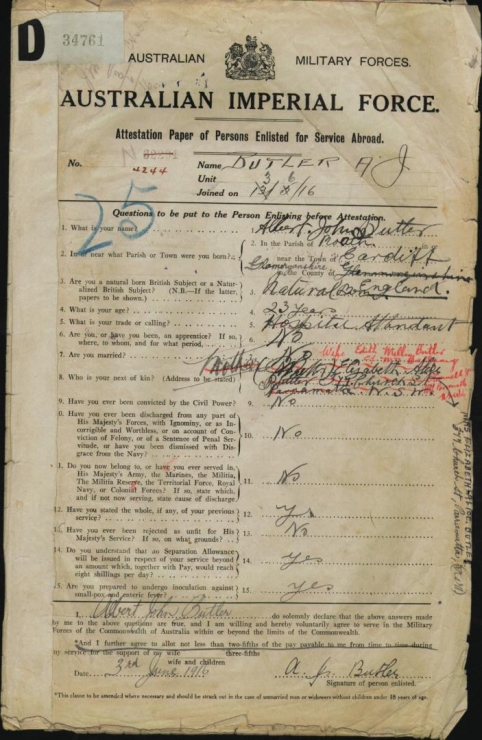 D
34761
AUSTRALIAN MILITARY FORCES.
AUSTRALIAN IMPERIAL FORCE.
Attestation Paper of Persons Enlisted for Service Abroad.
No. N
4244
Name BUTLER A J
Unit
Joined on /16
25
Questions to be put to the Person Enlisting before Attestation.
1. What is your name? 1. Albert John Butler
2. In or near what Parish or Town were you born? 2. In the Parish of Roath
near the Town of Cardiff
in the County of Glamorganshire
3. Are you a natural born British Subject or a Natur-
alized British Subject? (N.B.—If the latter,
papers to be shown.) 3. Natural Born England
4. What is your age? 4. 23 years
5. What is your trade or calling? 5. Hospital Attendant
6. Are you, or have you been, an apprentice? If so,
where, to whom, and for what period. 6. No
7. Are you married? 7. No
Wife Edith Butler
8. Who is your next of kin? (Address to be stated) Mother 8. Elizabeth Alice
Butler Church St
Parramatta N.S.W.
9. Have you ever been convicted by the Civil Power? 9. No
10. Have you ever been discharged from any part of
His Majesty's Forces, with Ignominy, or as In-
corrigible and Worthless, or on account of Con-
viction of Felony, or of a Sentence of Penal Ser-
vitude, or have you been dismissed with Dis-
grace from the Navy? 10. No
11. Do you now belong to, or have you ever served in,
His Majesty's Army, the Marines, the Militia,
The Militia Reserve, the Territorial Force, Royal
Navy, or Colonial Forces? If so, state which,
and if not now serving, state cause of discharge. 11. No
12. Have you stated the whole, if any, of your previous
service? 12. yes
13. Have you ever been rejected as unfit for His
Majesty's Service? If so, on what grounds? 13. No
14. Do you understand that no Separation Allowance
will be issued in respect of your service beyond
an amount which, together with Pay, would reach
eight shillings per day? 14. yes
15. Are you prepared to undergo inoculation against
small-pox and enteric fever? 15. yes
I, Albert John Butler do solemnly declare that the above answers made
by me to the above questions are true, and I am willing and hereby voluntarily agree to serve in the Military
Forces of the Commonwealth of Australia within or beyond the limits of the Commonwealth.
*And I further agree to allot not less than two-fifths of the pay payable to me from time to time during
my service for the support of my wife three-fifths
wife and children
Date 3rd June 1916 A. J. Butler
Signature of person enlisted.
*This clause to be amended where necessary and should be struck out in the case of unmarried men or widowers without children under 18 years of age.
MRS ELIZABETH ALICE BUTLER
Church St Parramatta